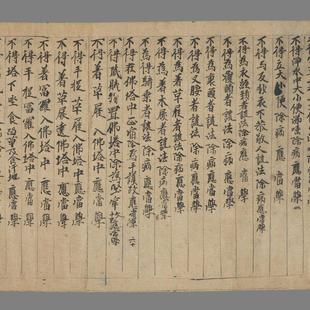 不得淨水中大小便涕唾除病應當學一
不得立大小便除病應當學
不得与反抄衣不恭敬人說法除病應當學
不得為衣纏頸者說法除病應當學
不得為覆頭者說法除病應當學
不得為裹頭者說法除病應當學
不得為叉腰者說法除病應當學
不得為着草屣者說法除病應當學
不得為着木屐者說法除病應當學
不得為騎乘者說法除病應當學
不得在佛塔中止宿除為守護故應當學六十
不得藏財物置佛塔中除為堅牢故應當學
不得着草屣入佛塔中應當學
不得手捉草屣入佛塔中應當學
不得着草屣遶佛塔中應當學
不得着富羅入佛塔中應當學
不得手捉富羅入佛塔中應當學
不得塔下坐食留草及食污地應當學